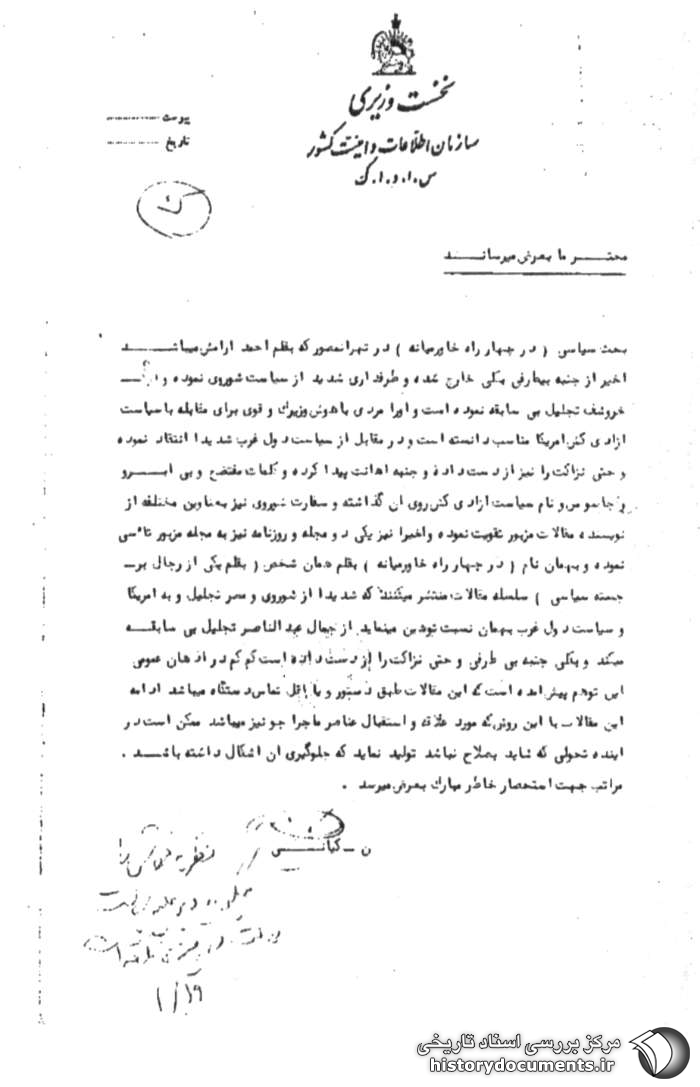 نخست وزیری
سازمان اطلاعات و امنیت کشور
س.ا.و.ا.ک
پیوست
تاریخ
محترما بعرض میرساند
بحث سیاسی ( در چهار راه خاورمیانه ) در تهرانمصور که بقلم احمد ارامش میباشد
اخیر از جنبه بیطرفی بکلی خارج شده و طرفداری شدید از سیاست شوروی نموده و از
خروشف تجلیل بی سابقه نموده است و اورا مردی با هوش وزیرک و قوی برای مقابله با سیاست
ازادی کش امریکا مناسب دانسته است و در مقابل از سیاست دول غرب شدیدا انتقاد نموده
و حتی نزاکت را نیز از دست داده و جنبه اهانت پیدا کرده و کلمات مفتضح و بی ابرو
و جاسوس و نام سیاست ازادی کش روی ان گذاشته و سفارت شوروی نیز بعناوین مختلفه از
نویسنده مقالات مزبور تقویت نموده و اخیرا نیز یکی دو مجله و روزنامه نیز به مجله مزبور تاسی
نموده و بهمان نام ( در چهار راه خاورمیانه ) بقلم همان شخص ( بقلم یکی از رجال بر-
جسته سیاسی ) سلسله مقالات منتشر میکنند که شدیدا از شوروی و مصر تجلیل و به امریکا
و سیاست دول غرب بهمان نسبت توهین مینماید از جمال عبدالناصر تجلیل بی سابقه
میکند و بکلی جنبه بی طرفی و حتی نزاکت را از دست داده است کم کم در اذهان عمومی
این توهم پیش امده است که این مقالات طبق دستور و یا اقل تماس دستگاه میباشد ادامه
این مقالات با این روش که مورد علاقه و استقبال عناصر ماجرا جو نیز میباشد ممکن است در
اینده تحولی که شاید بصلاح نباشد تولید نماید که جلوگیری ان اشکال داشته باشد .
مراتب جهت استحضار خاطر مبارک بعرض میرسد .
ن - کیانس
۱/۱۹
مرکز بررسی اسناد تاریخی
historydocuments.ir